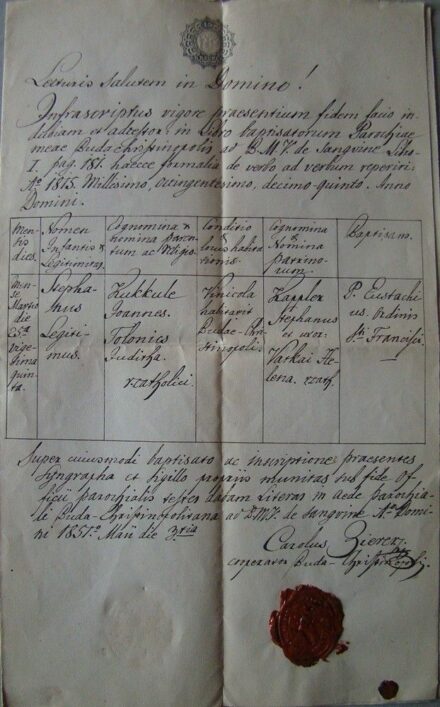 Lecturis Salutem in Domino!
Infrascriptus vigore praesentium fidem facio in
dubiam et adtestor in Libro baptisatorum Parochiae
meae Buda christinopolis ad B.M.V. de Sanguine Libo
I. pag. 181. haecce formalia de verbo ad verbum reperiri
Ao 1815. Millesimo, octingentesimo, decimo-quinto. Anno
Domini.
Mensis dies.
Nomen Infantis & Legitimitas
Cognomina & nomina parentum ac religio
Conditio locus habitationis
Cognomina & Nomina patrinorum.
Baptisans.
Mense Martio die 25ta vigesima quinta.
Stephanus Legitimus.
Kukkule Joannes. Polonics Juditha. r.catholici.
Vinicola habitavit Budae Christinopoli.
Kappler Stephanus et uxor. Varkai Helena. r.cath.
P. Eustachius. Ordinis Sti Francisci.
Super cujusmodi baptisato ac inscriptione praesentes
Syngrapha et sigillo propriis munitas sub fide of
ficii parochialis testes datam Literas in Aede parochia
li Buda-Christinopolitana ad B.M.V. de Sanguine Ao Domi
ni 1851o Maii die 3tia
Carolus
cooperator Buda-Christinopoli.